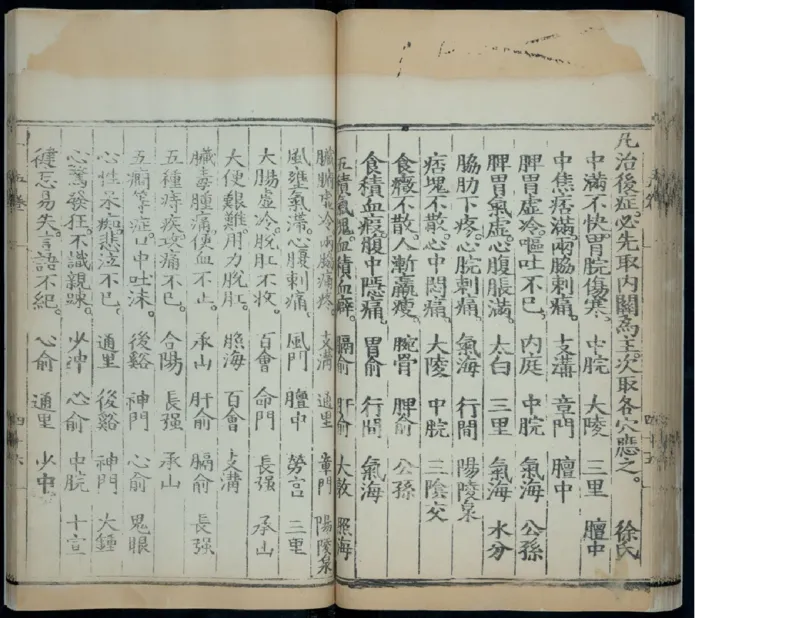 凡治後症必先取内關為主次取各穴應之。 徐氏
中滿不快胃脘傷寒。 中脘 大陵 三里 膻中
中焦痞滿兩脇刺痛。 支溝 章門 膻中
脾胃虛冷嘔吐不已。 内庭 中脘 氣海 公孫
脾胃氣虛心腹脹滿。 太白 三里 氣海 水分
脇肋下疼心脘刺痛。 氣海 行間 陽陵泉
痞塊不散心中悶痛。 大陵 中脘 三陰交
食癥不散人漸羸瘦。 腕骨 脾俞 公孫
食積血瘕腹中隱痛。 胃俞 行間 氣海
五積氣塊血積血癖。 膈俞 肝俞 大敦 照海
臟腑虛冷兩脇痛疼。 支溝 通里 章門 陽陵泉
風壅氣滯心腹刺痛。 風門 膻中 勞宫 三里
大腸虛冷脫肛不收。 百會 命門 長强 承山
大便艱難用力脫肛。 照海 百會 支溝
臟毒腫痛便血不止。 承山 肝俞 膈俞 長强
五種痔疾攻痛不已。 合陽 長强 承山
五癎等症口中吐沫。 後谿 神門 心俞 鬼眼
心性呆痴悲泣不已。 通里 後谿 神門 大鍾
心驚發狂不識親踈。 少冲 心俞 中脘 十宣
健忘易失言語不紀。 心俞 通里 少冲
五卷
四十六
四十五